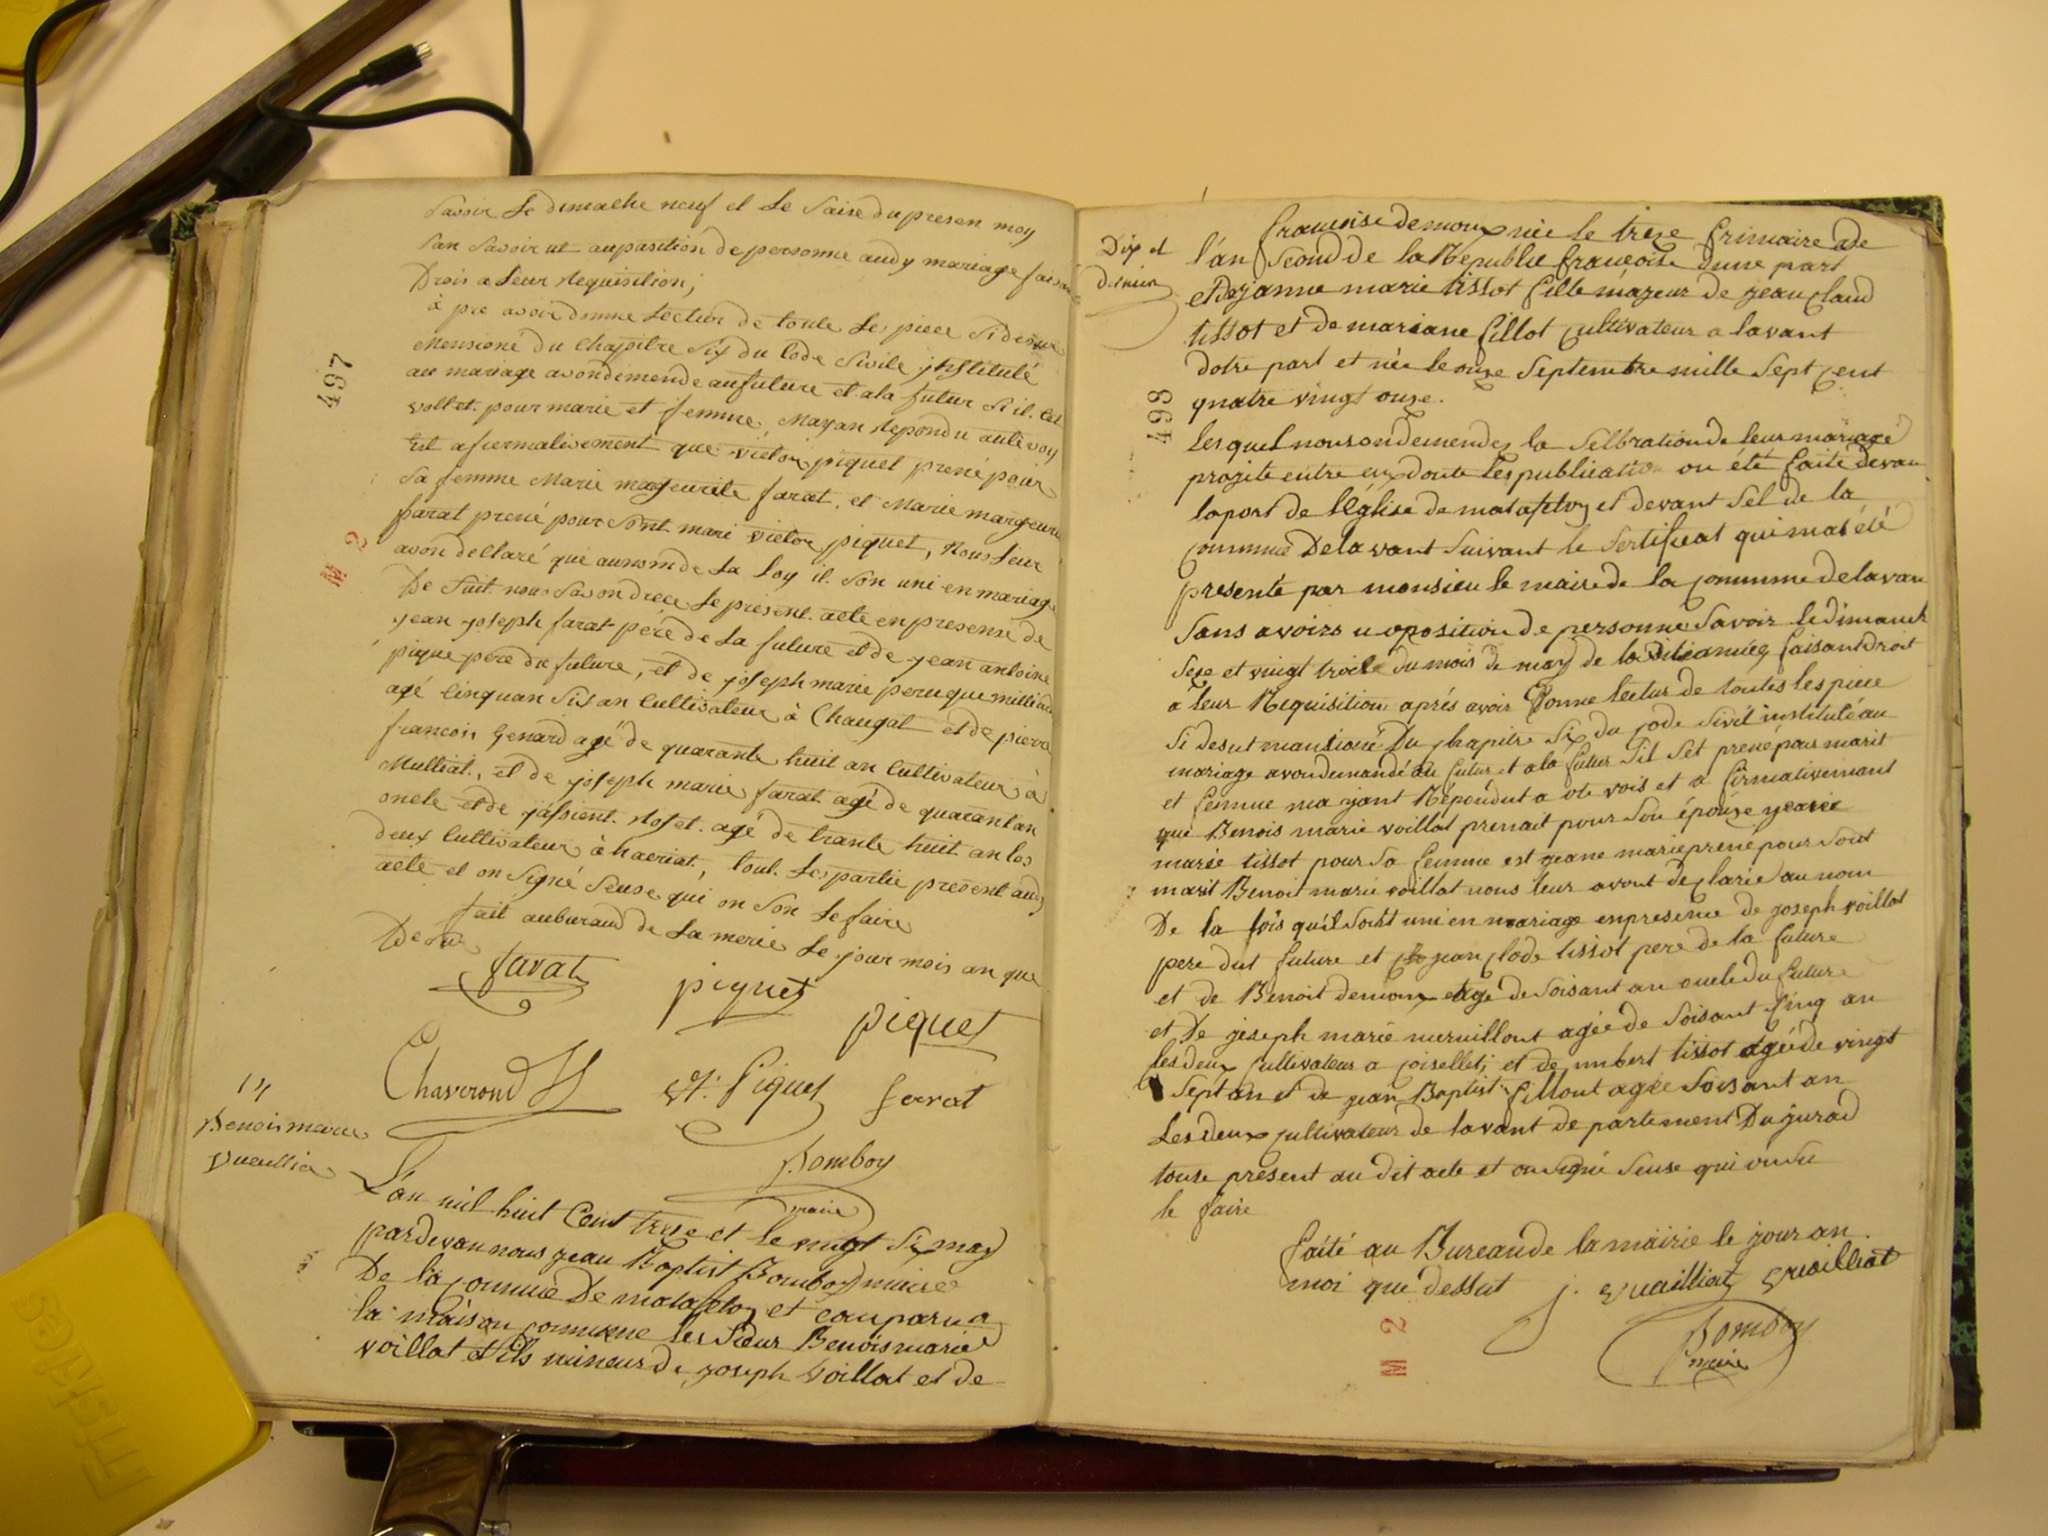 Savoir Le dimache neuf et Le Saise du presen moy
San Savoir ut auposition de personne audy mariage faisan
Drois a Leur Requisition,
à pre avoir donne Lecture de toute Les piece Sidesue
Mensioné du Chapitre Six du Code Sivile jnstitulé
au mariage avon demende aufuture et ala futur Si il. Ces
vollet. pour marie et femme, Mayan Repondu aute voy
et afiermativement que victor piquet prené pour
Sa femme Marie margeurite farat, et Marie margeurite
farat prené pour Sont mari victor piquet, Nous Leur
avon dellaré qui aunom de La Loy il. Son uni en mariage
De Suit nous Savon drece Le présent. acte en presense de
jean joseph farat pére de La future et de jean antoine
pique pere du future, et de joseph marie peruque milliand
agé Cinquan Sis an Cultivateur à Chaugat et de pierre
francois Genard agé de quarante huit an Cultivateur à
Mulliat., et de joseph marie farat agé de quarant an
oncle et de jassient. Rofet. agé de trante huit an los
deux Cultivateur à haeriat, tout. Les partie présent audy
acte et on Signé Seuse qui on Son Le faire
fait auburaud de La merie Le jour mois an que
De Su
farat
piquet
piquet
Chaverond
J. Piquet
ferrat
Bomboy
maire
497
M 2
17
Benois marie
Vueillia
L'an mil huit Cent treze et le vingt Six may
pardevan nous jean Baptist Bomboy maire
De la Comune De matafelon et comparu a
la maison comune les Sieur Benois marie
voillat et fils mineur de joseph voillat et de
Dix et
dernier
francoise demoux née le treze frimaire de
l'án Scond de la Républie françoise dune part
et De janne marie tissot fille mageur de jean claud
tissot et de mariane fillot cultivateur a lavant
dotre part et née le onze Septembre mille Sept cent
quatre vingt onze.
les quel nous on demendez la Selbration de leur mariage
progite entre eux doute les publication on été faite devan
la port de lÉglise de matafelon et devant Sel de la
commune De lavant Suivant le Sertificat qui mat été
presenté par monsieu le maire de la commune de lavan
Sans avoir u oposition de personne Savoir le dimanch
Seze et vingt troise du mois de may de la dite année faisant Droit
a leur Requisition aprés avoir Donne lectur de toutes les piece
Si desut mansioné Du chapitre Six du code Sivil instituté au
mariage avon demandé au futur et a la futur Sil Set prené pour marit
et femme ma yant Répondut a ote vois et a firmativemant
que Benois marie voillat prenait pour Son épouze jeane
marie tissot pour Sa femme est jeane marie prené pour Sont
marit Benoit marie voillat nous leur avont declarée au nom
De la lois quil Sont uni en mariage en presence de joseph voillat
pere dut future et jean clode tissot pere de la future
et de Benoit demoux age de Soisant an oncle du future
et De joseph marie mermillont agée de Soisant Cinq an
les deux Cultivateur a coisellet; et de umbert tissot agée de vingt
Sept an et de jean Baptist fillout agée Soisant an
Les deux cultivateur de lavant de partement Du jurad
touse present au dit acte et on Signé Seuse qui on Su
le faire
faité au Bureau de la mairie le jour an
moi que dessut
J. Vuailliat
Vuailliat
Bomboy
maire
498
M 2
ITstyles